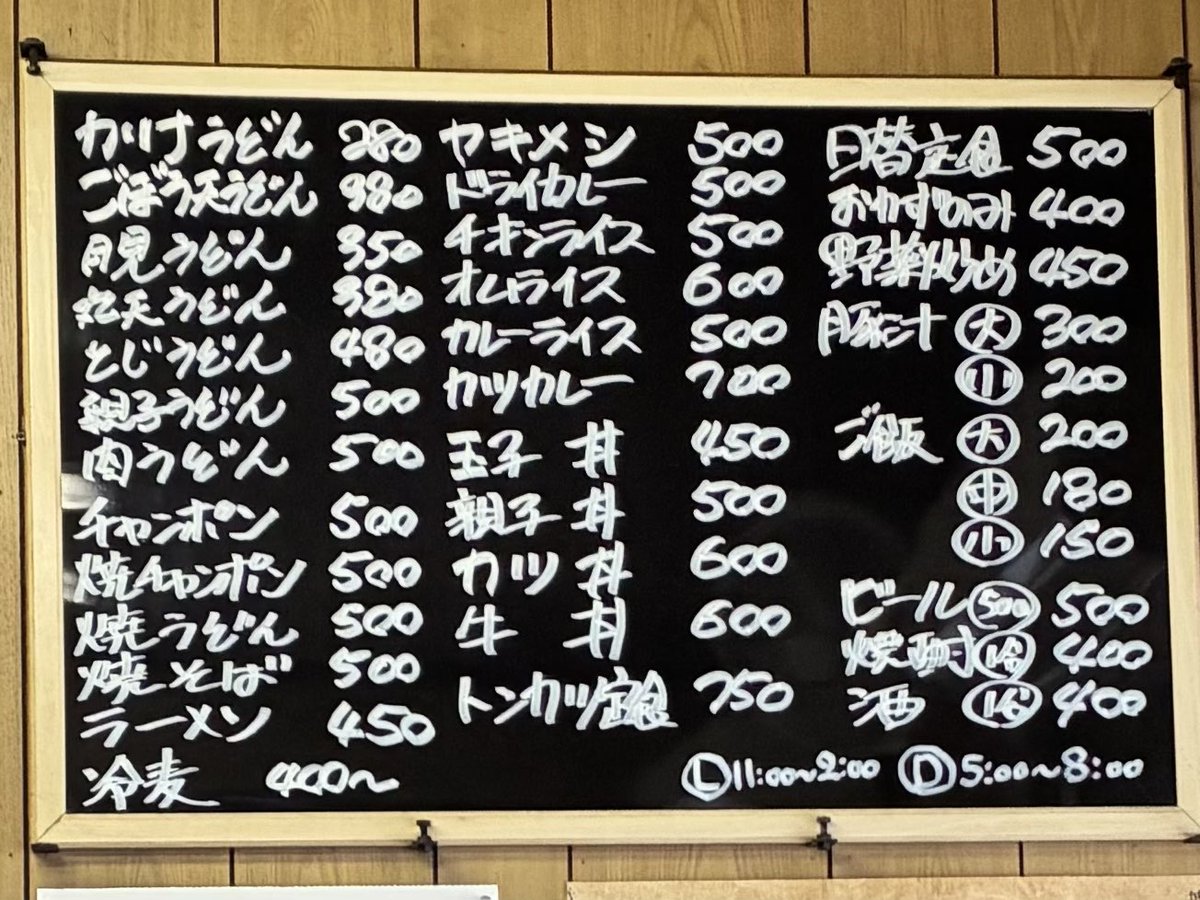 かけうどん 280
ごぼう天うどん 380
月見うどん 350
丸天うどん 380
とじうどん 480
親子うどん 500
肉うどん 500
チャンポン 500
焼チャンポン 500
焼うどん 500
焼そば 500
ラーメン 450
冷麦 400〜
ヤキメシ 500
ドライカレー 500
チキンライス 500
オムライス 600
カレーライス 500
カツカレー 700
玉子丼 450
親子丼 500
カツ丼 600
牛丼 600
トンカツ定食 750
日替定食 500
おかずのみ 400
野菜炒め 450
豚汁 大 300
小 200
ご飯 大 200
中 180
小 150
ビール 500 500
焼酎 400
酒 400
Ⓛ11:00〜2:00 Ⓓ5:00〜8:00